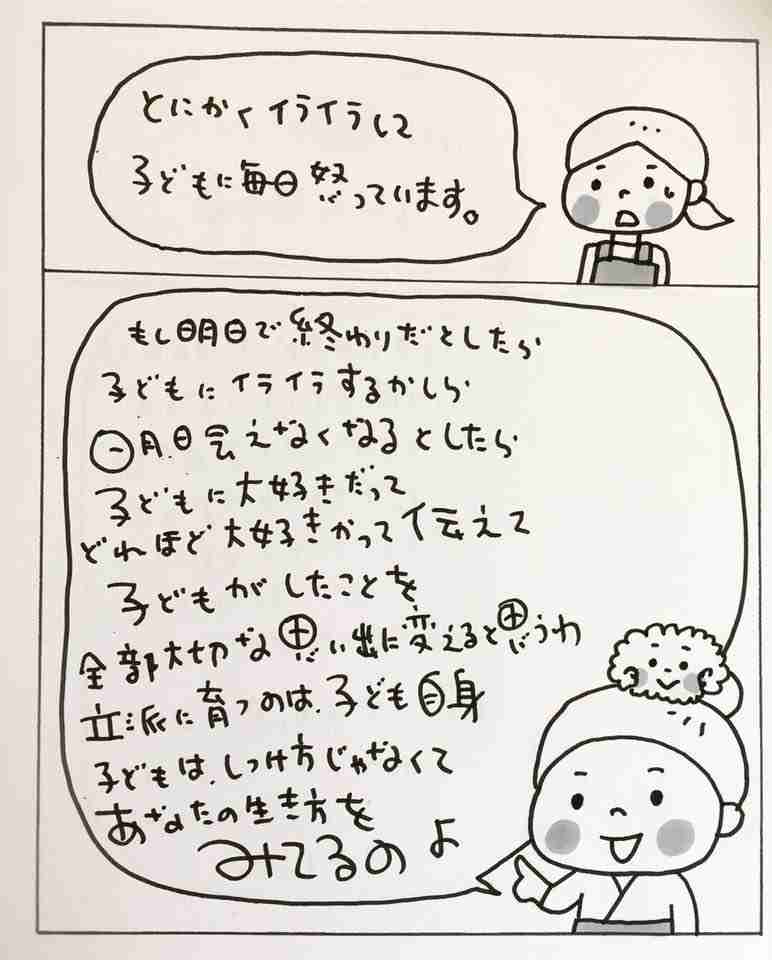 とにかくイライラして
子どもに毎日怒っています。
もし明日で終わりだとしたら
子どもにイライラするかしら
明日会えなくなるとしたら
子どもに大好きだって
どれほど大好きかって伝えて
子どもがしたことを
全部大切な思い出に変えると思うわ
立派に育つのは、子ども自身
子どもは、しつけ方じゃなくて
あなたの生き方を
みてるのよ